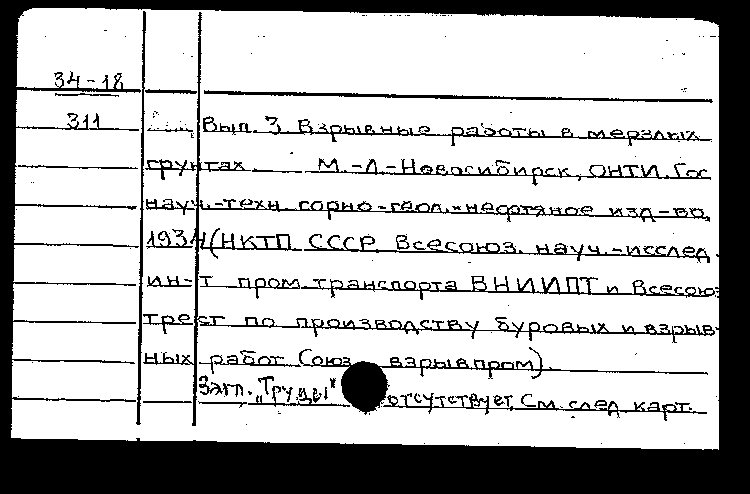 34-18
311
Вып. 3 Взрывные работы в мерзлых
грунтах. М.-Л.-Новосибирск, ОНТИ. Гос
науч.-техн. горно-геол.-нефтяное изд-во,
1934 (НКТП СССР. Всесоюз. науч.-исслед.
ин-т пром. транспорта ВНИИПТ и Всесоюз
трест по производству буровых и взрыв-
ных работ Союз взрывпром).
Загл. "Труды" отсутствует. См след карт.